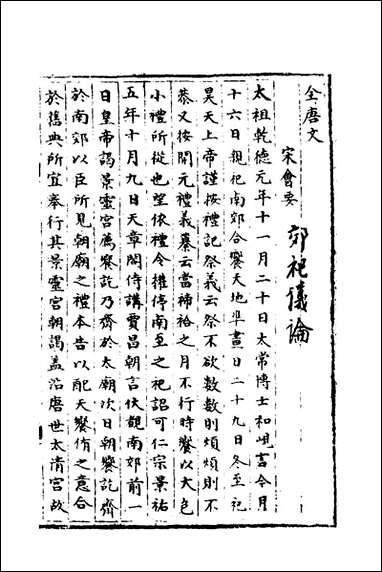 全唐文
宋會要
郊祀儀論
太祖乾德元年十一月二十日太常博士和峴言今月
十六日親祀南郊合饗天地準畫日二十九日冬至祀
昊天上帝謹按禮記祭義云祭不欲數數則煩煩則不
恭又按開元禮義纂云當禘祫之月不行時饗以大包
小禮所從也望依禮令權停南至之祀詔可仁宗景祐
五年十月九日天章閣侍講賈昌朝言伏覩南郊前一
日皇帝謁景靈宮薦饗訖乃齋於太廟次日朝饗訖齊
於南郊以臣所見朝廟之禮本告以配天饗侑之意合
於舊典所宜奉行其景靈宮朝謁蓋沿唐世太清宮故